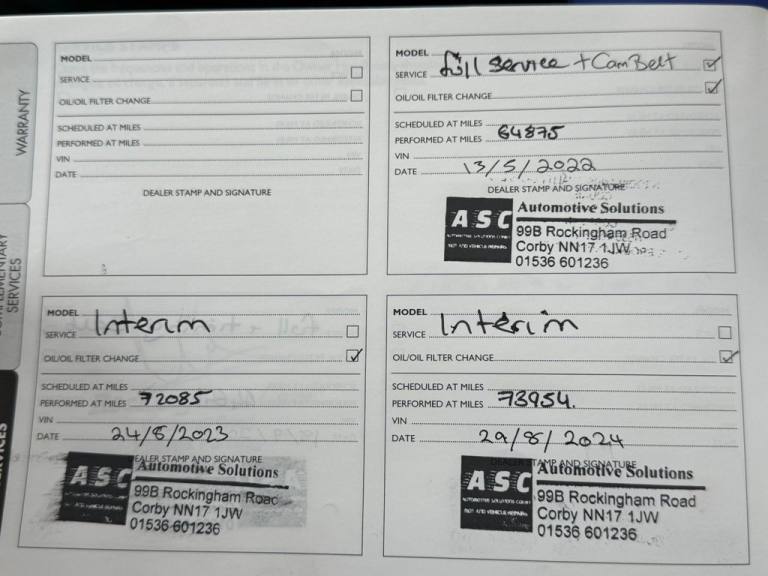 WARRANTY
SERVICES
MODEL
SERVICE
OIL/OIL FILTER CHANGE
SCHEDULED AT MILES
PERFORMED AT MILES
VIN
DATE
DEALER STAMP AND SIGNATURE
MODEL
SERVICE full service + CamBelt
OIL/OIL FILTER CHANGE
SCHEDULED AT MILES
PERFORMED AT MILES 64875
VIN
DATE 13/5/2022
DEALER STAMP AND SIGNATURE
ASC Automotive Solutions
99B Rockingham Road
Corby NN17 1JW
01536 601236
MODEL Interim
SERVICE
OIL/OIL FILTER CHANGE
SCHEDULED AT MILES
PERFORMED AT MILES 72085
VIN
DATE 24/8/2023
DEALER STAMP AND SIGNATURE
ASC Automotive Solutions
99B Rockingham Road
Corby NN17 1JW
01536 601236
MODEL Interim
SERVICE
OIL/OIL FILTER CHANGE
SCHEDULED AT MILES
PERFORMED AT MILES 73954.
VIN
DATE 29/8/2024
DEALER STAMP AND SIGNATURE
ASC Automotive Solutions
AUTOMOTIVE SOLUTIONS CORBY
MOT AND VEHICLE REPAIRS
99B Rockingham Road
Corby NN17 1JW
01536 601236